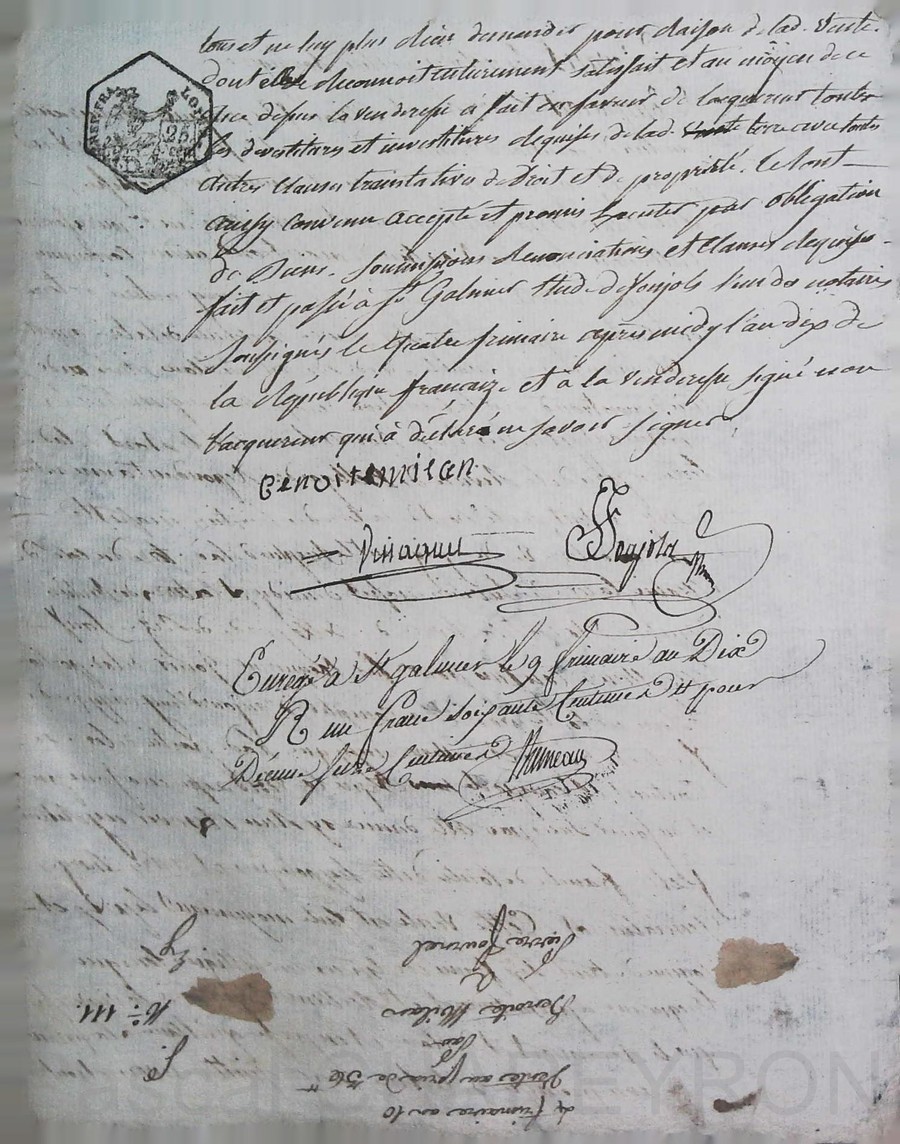 tous et ne luy plus rien demander pour raison de lad. vente.
dont elle reconnoit entierement satisfait et au moÿen de ce
depuis la venderesse à fait en faveur de lacquereur toutes
les devetitures et investitures requises de lad. vente terre avec toutes
autres clauses translatives de Droit et de propriété. Ce sont
aussy convenu accepté et promis executer par obligation
de Biens. Soumissions Renonciations et Clauses requises.
fait et passé à St. Galmier Etude de fogjols l'un des notaires
Soussignés le Quatre frimaire après midy l'an dix de
la République francaize et à la venderesse signé non
lacquereur qui à déclaré ne savoir signer
Benoite milan
fogjols
Enregé a St. galmier le 9 frimaire an Dix
R un franc soixante Centimes et pour
Décime seize Centimes Bruneau
LOI
25
4 frimaire an 10
Vente au prix de 36
Par
Benoite Milan
à
Pierre Fournel